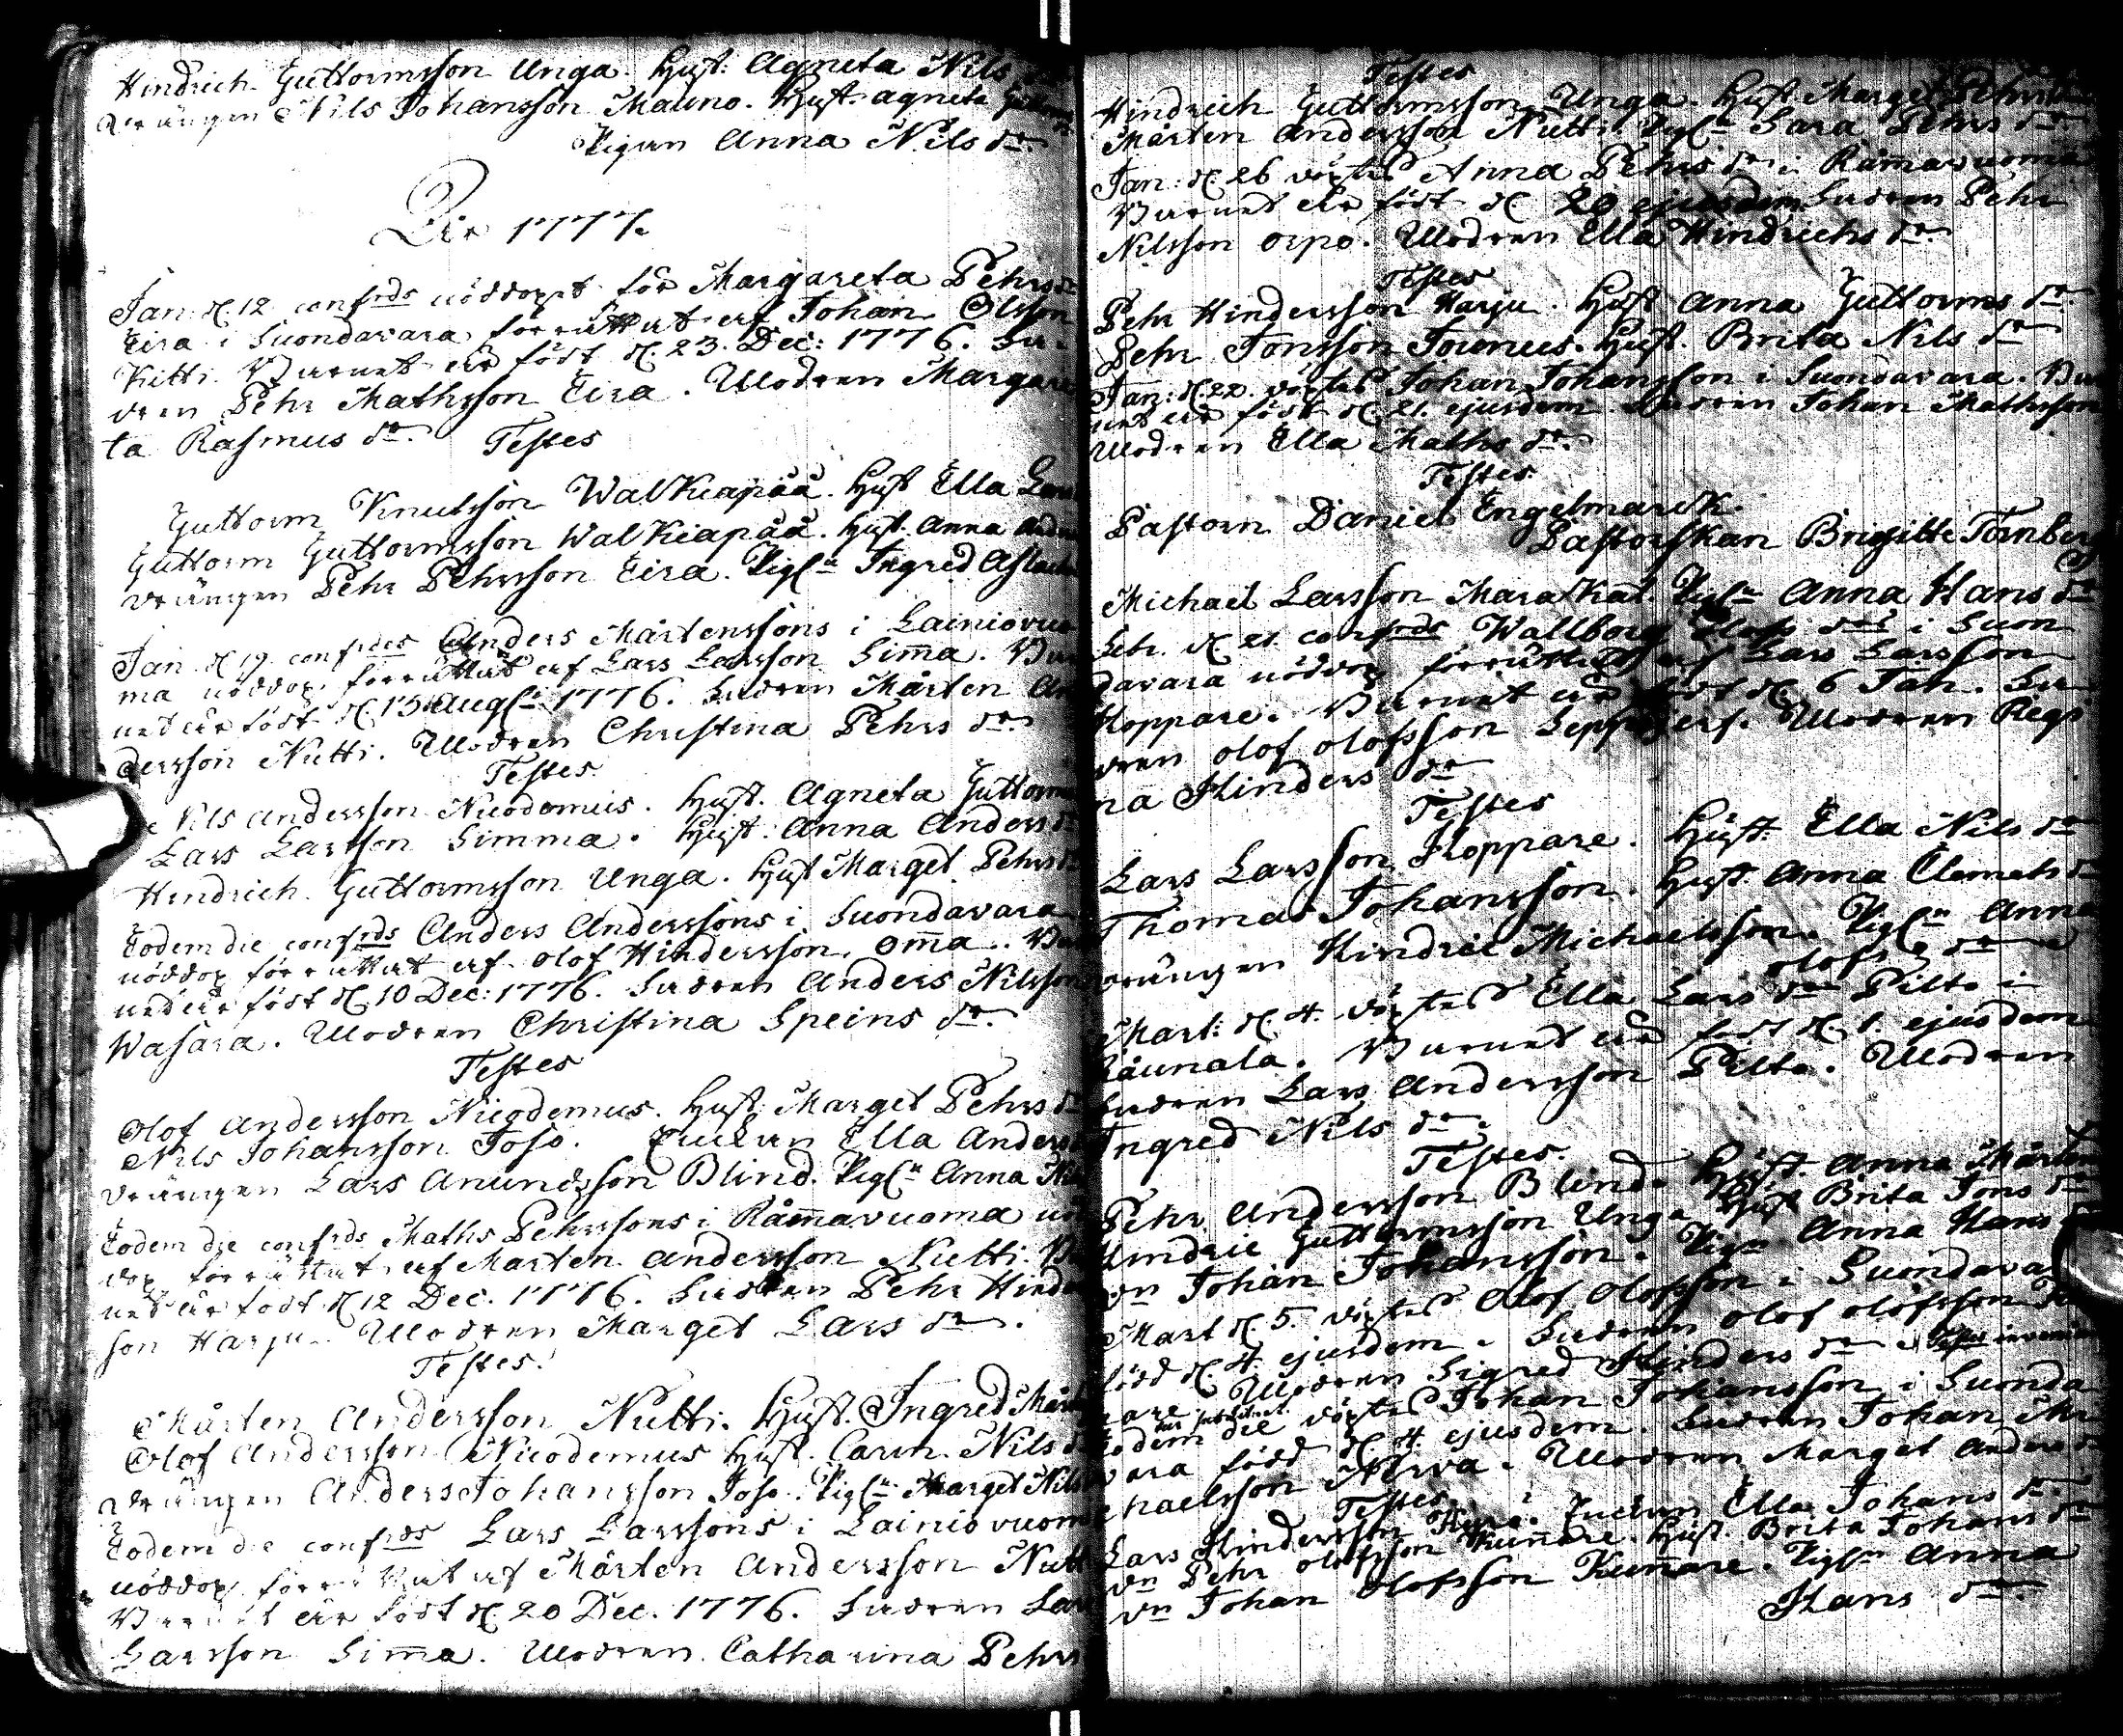 Hindrich Guttormsson Unga. Hust: Agneta Nils
drängen Nils Johansson Mauno. Hust. agneta Guttorms
dr
Pigan Anna Nils dr
År 1777.
Jan: d. 12 confrds nöddopet för Margareta Pehrs dr
Eira i Suondavara förrättat af Johan Olsson
Kitti. Barnet är födt d. 23. Dec: 1776. Fa-
dren Pehr Mathsson Eira. Modren Margare
ta Rasmus dr.
Testes
Guttorm Knutsson Walkiapää. Hust Ella Lars
Guttorm Guttormsson Walkiapää. Hust. Anna
drängen Pehr Pehrsson Eira. Pigan Ingred Aslachs
Jan d. 19. confrdes Anders Mårtenssons i Lainiovuo
ma nöddop förrättat af Lars Larsson Sima. Bar
net är födt d. 15 Augti 1776. Fadren Mårten An
dersson Nutti. Modren Christina Pehrs dr.
Testes.
Nils Andersson Nicodemus. Hust. Agneta Guttorms
Lars Larsson Simma. Hust. Anna Anders dr
Hindrich Guttormsson Unga. Hust Marget Pehrs dr
Eodem die confrds Anders Anderssons i Suondavara
nöddop förrättat af Olof Hindersson Oma. Bar
net är födt d. 10 Dec: 1776. Fadren Anders Nilsson
Wasara. Modren Christina Speins dr.
Testes
Olof Andersson Nicodemus. Hust. Marget Pehrs dr
Nils Johansson Joso. Enckan Ella Anders
drängen Lars Anundsson Blind. Pign Anna Nils
Eodem die confrds Maths Pehrssons i Råmavuoma nöd
dop förrättat af Marten Andersson Nutti. Bar
net är födt d. 12 Dec. 1776. Fadren Pehr Hinders
son Harju. Modren Marget Lars dr.
Testes.
Mårten Andersson Nutti. Hust. Ingred Mårt
Olof Andersson Nicodemus Hust. Carin Nils dr
drängen Anders Johansson Joso. Pign Marget Nils
Eodem die confrds Lars Larssons i Lainiovuom
nöddop förrättat af Mårten Andersson Nutt
Barnet är födt d. 20 Dec. 1776. Fadren Lars
Larsson Sima. Modren Catharina Pehrs
Testes
Hindrich Guttormsson Unga. Hust Marget Pehrs
Mårten Andersson Nutti. Pign Sara Pehrs dr.
Jan: d. 26 döptes Anna Pehrs dr i Råmavuoma
Barnet är födt d. 20 ejusdem Fadren Pehr
Nilsson Orpo. Modren Ella Hindrichs dr.
Testes
Pehr Hindersson Harju. Hust Anna Guttorms dr.
Pehr Jonsson Jounus. Hust. Brita Nils dr
Jan: d. 22. döptes Johan Johansson i Suondavara. Bar
net är födt d. 21. ejusdem Fadren Johan Mathsson
Modren Ella Maths dr.
Testes.
Pastorn Daniel Engelmarck.
Pastorskan Brigitte Törnberg
Michael Larsson Maratkat Pign Anna Hans dr
Febr. d. 21. confrds Wallborg Olofs drs i Suon
davara nöddop förrättat af Lars Larsson
Hoppare. Barnet är födt d. 6 Jan. Fa
dren Olof Olofsson Modren Regi
na Hinders dr
Testes
Lars Larsson Hoppare. Hust. Ella Nils dr
Thomas Johansson. Hust. Anna Clemets dr
drängen Hindric Michaelsson. Pign Anna
Olofs dr
Mart: d. 4. döptes Ella Lars dr Pilto i
Råunala. Barnet är födt d. 1. ejusdem
Fadren Lars Andersson Pilto. Modren
Ingred Nils dr.
Testes.
Pehr Andersson Blind. Hust. Anna Mårtens
Hindric Guttormsson Unga Hust Brita Jons dr
Dn Johan Johansson. Pign Anna Hans dr
Mart d. 5. döptes Olof Olofsson i Suondavara
född d. 4. ejusdem. Fadren Olof Olofsson
Modren Sigred Hinders dr. Testes
Eodem die döptes Johan Johansson i Suonda
vara född d. 4. ejusdem. Fadren Johan Mi
chaelsson Nerva. Modren Marget Anders dr
Testes.
Lars Hindersson Enckan Ella Johans dr.
Dn Pehr Olofsson Kumare. Hust. Brita Johans dr
Dn Johan Olofsson Kumare. Pign Anna
Hans dr.